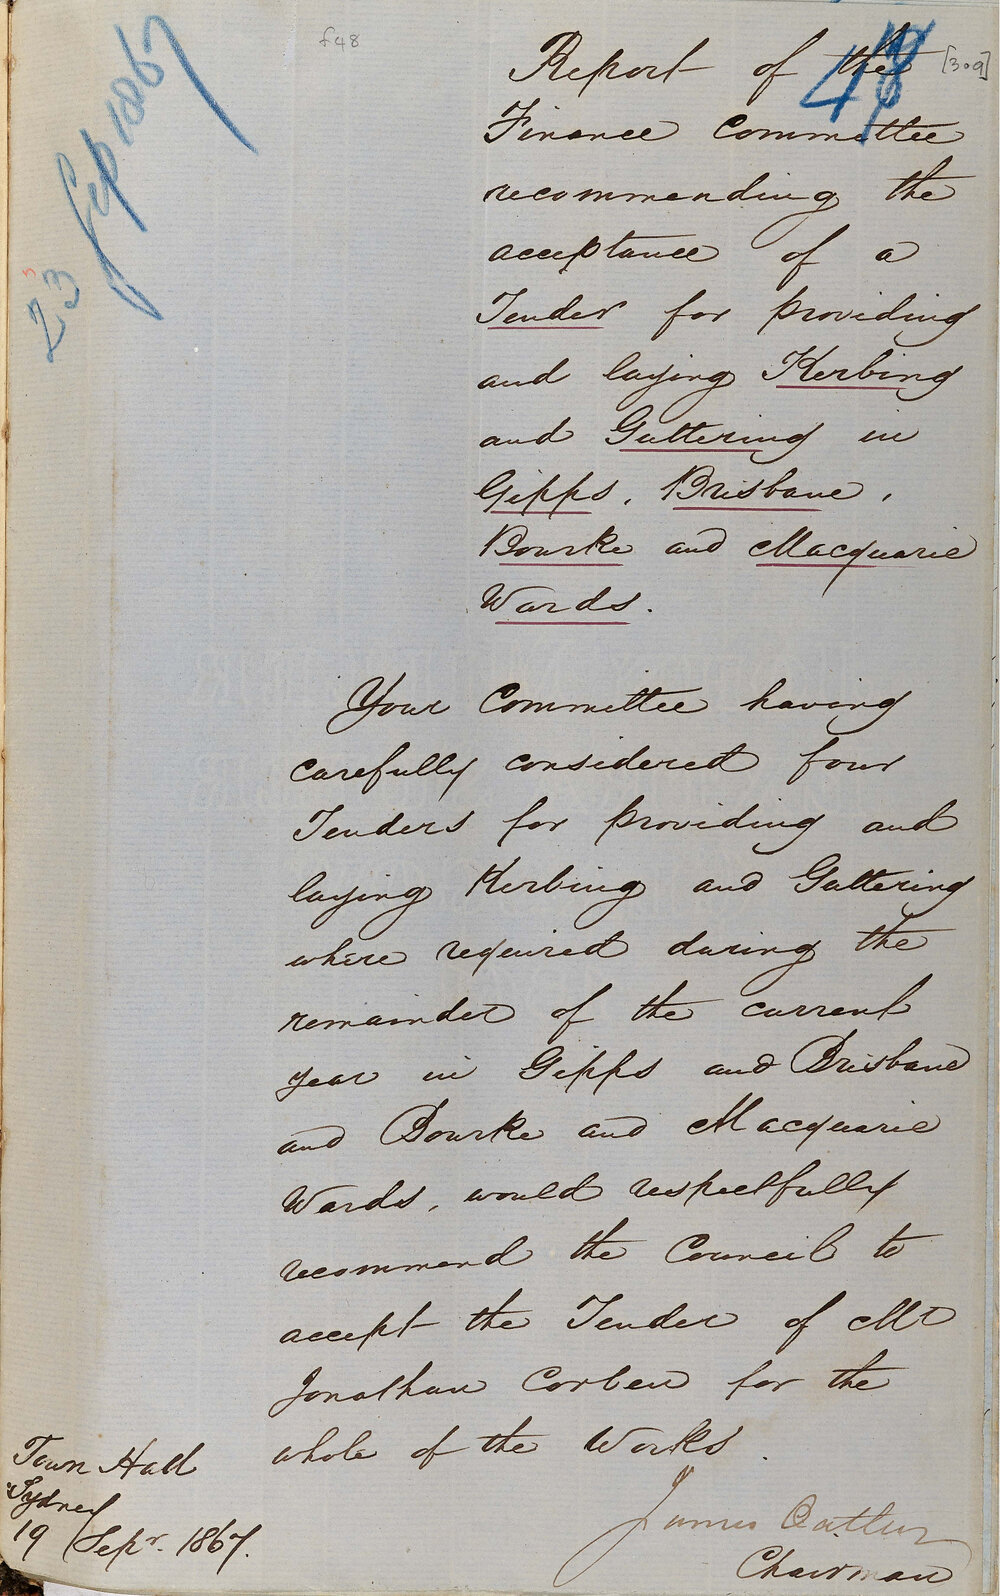 23 Sep 1867
f48
48
[309]
Report of the
Finance Committee
recommending the
acceptance of a
Tender for providing
and laying Kerbing
and Guttering in
Gipps, Brisbane,
Bourke and Macquarie
Wards.
Your Committee having
carefully considered four
Tenders for providing and
laying Kerbing and Guttering
where required during the
remainder of the current
year in Gipps and Brisbane
and Bourke and Macquarie
Wards, would respectfully
recommend the Council to
accept the Tender of Mr
Jonathan Corben for the
whole of the Works.
Town Hall
Sydney
19 Sepr. 1867.
James
Chairman